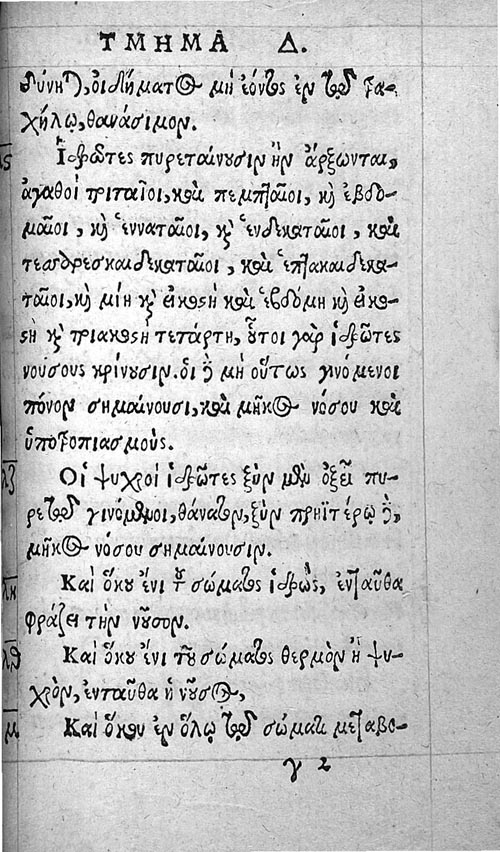 ΤΜΗΜΑ Δ.
δύνῃ), οἰδήματος μὴ ἐόντος ἐν τῷ τρα-
χήλῳ, θανάσιμον.
λς Ἱδρῶτες πυρεταίνουσιν ἢν ἄρξωνται,
ἀγαθοὶ τριταῖοι, καὶ πεμπταῖοι, καὶ ἑβδο-
μαῖοι, καὶ ἐνναταῖοι, καὶ ἑνδεκαταῖοι, καὶ
τεσσαρεσκαιδεκαταῖοι, καὶ ἑπτακαιδεκα-
ταῖοι, καὶ μιῇ καὶ εἰκοστῇ καὶ ἑβδόμη καὶ εἰκο-
στῇ καὶ τριακοστῇ τετάρτη, οὗτοι γὰρ ἱδρῶτες
νούσους κρίνουσιν. οἱ δὲ μὴ οὕτως γινόμενοι
πόνον σημαίνουσι, καὶ μῆκος νόσου καὶ
ὑποτροπιασμούς.
λζ Οἱ ψυχροὶ ἱδρῶτες ξὺν μὲν ὀξεῖ πυ-
ρετῷ γινόμενοι, θάνατον, ξὺν πρηϊτέρῳ δὲ,
μῆκος νόσου σημαίνουσιν.
λη Καὶ ὅκου ἔνι τοῦ σώματος ἱδρὼς, ἐνταῦθα
φράζει τὴν νοῦσον.
λθ Καὶ ὅκου ἔνι τοῦ σώματος θερμὸν ἢ ψυ-
χρὸν, ἐνταῦθα ἡ νοῦσος,
μ Καὶ ὅκου ἐν ὅλῳ τῷ σώματι μεταβο-
γ 2